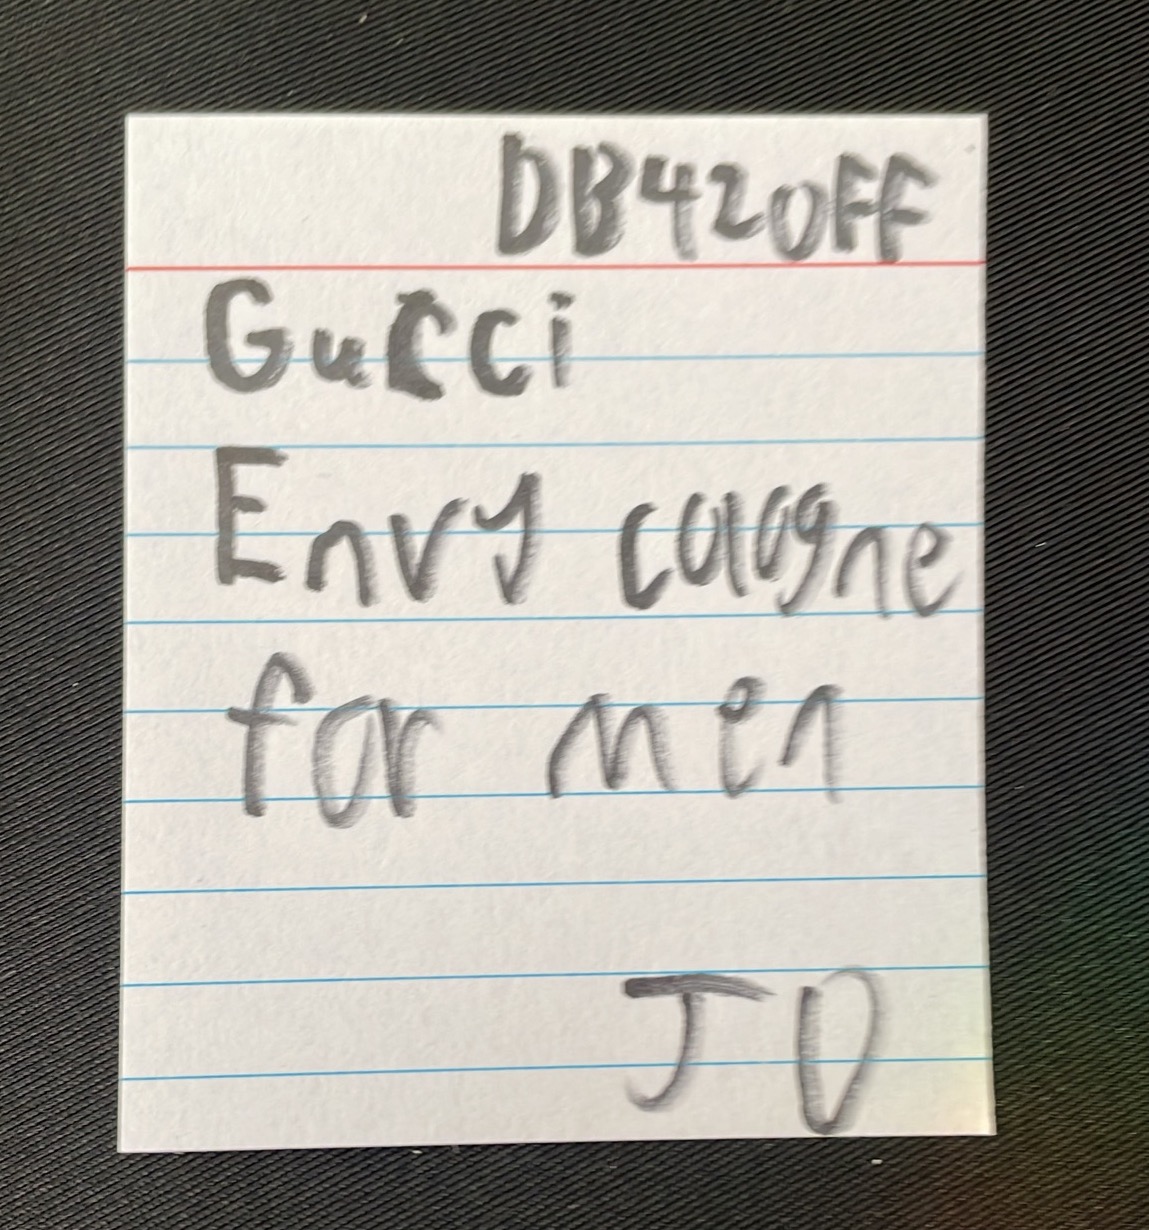 DB420FF
Gucci
Envy cologne
for men
JO